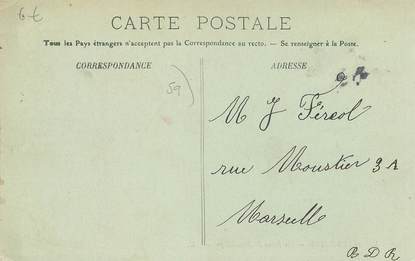 6€
CARTE POSTALE
Tous les Pays étrangers n'acceptent pas la Correspondance au recto. — Se renseigner à la Poste.
CORRESPONDANCE
ADRESSE
59
M J Féréol
rue Moustier 3A
Marseille
R D R